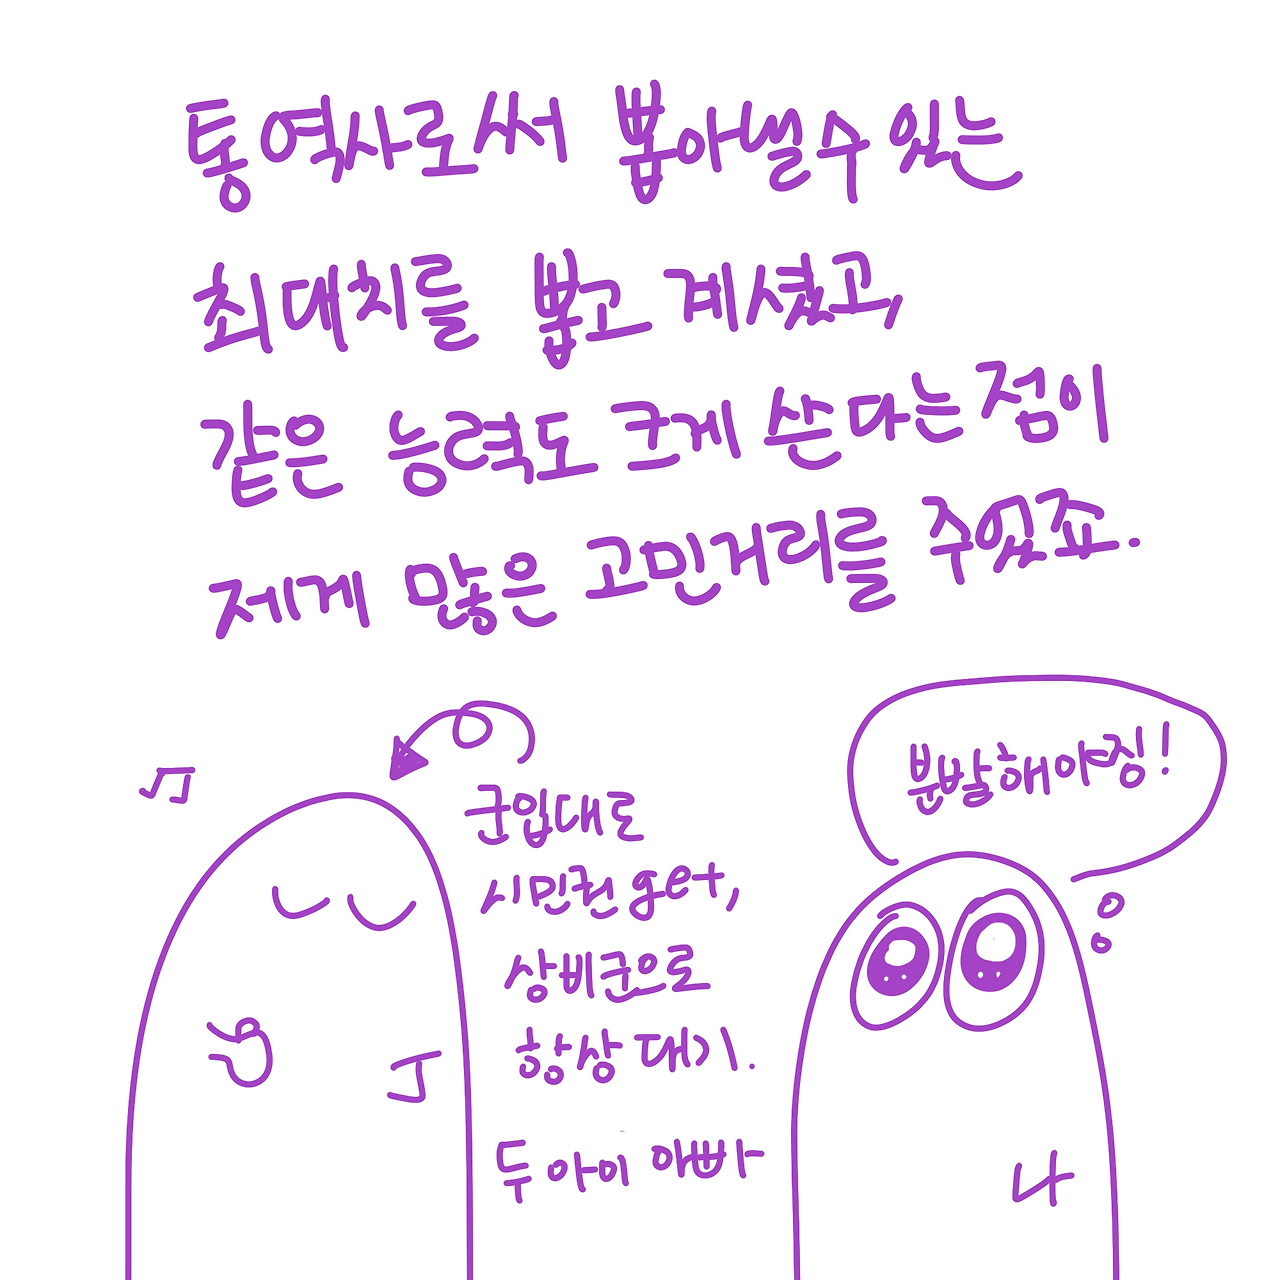 통역사로써 뽑아낼수있는
최대치를 뽑고 계셨고,
같은 능력도 크게 쓴다는점이
제게 많은 고민거리를 주었죠.
분발해야징!
군입대로
시민권 get,
상비군으로
항상 대기.
두 아이 아빠
J
나